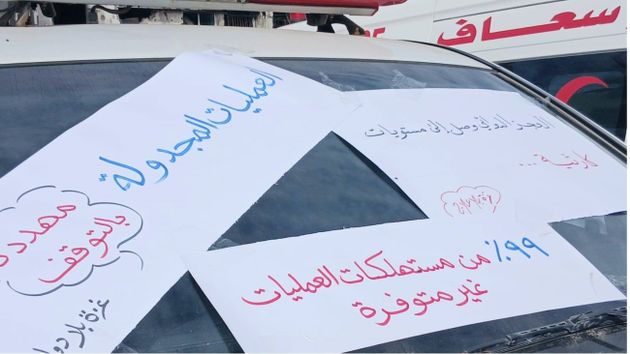 سعاف
العمليات المجدولة
مهددة
بالتوقف
غزة بلا دوا
العجز الدوائي وصل إلى مستويات
كارثية ...
٩٩٪ من مستهلكات العمليات
غير متوفرة